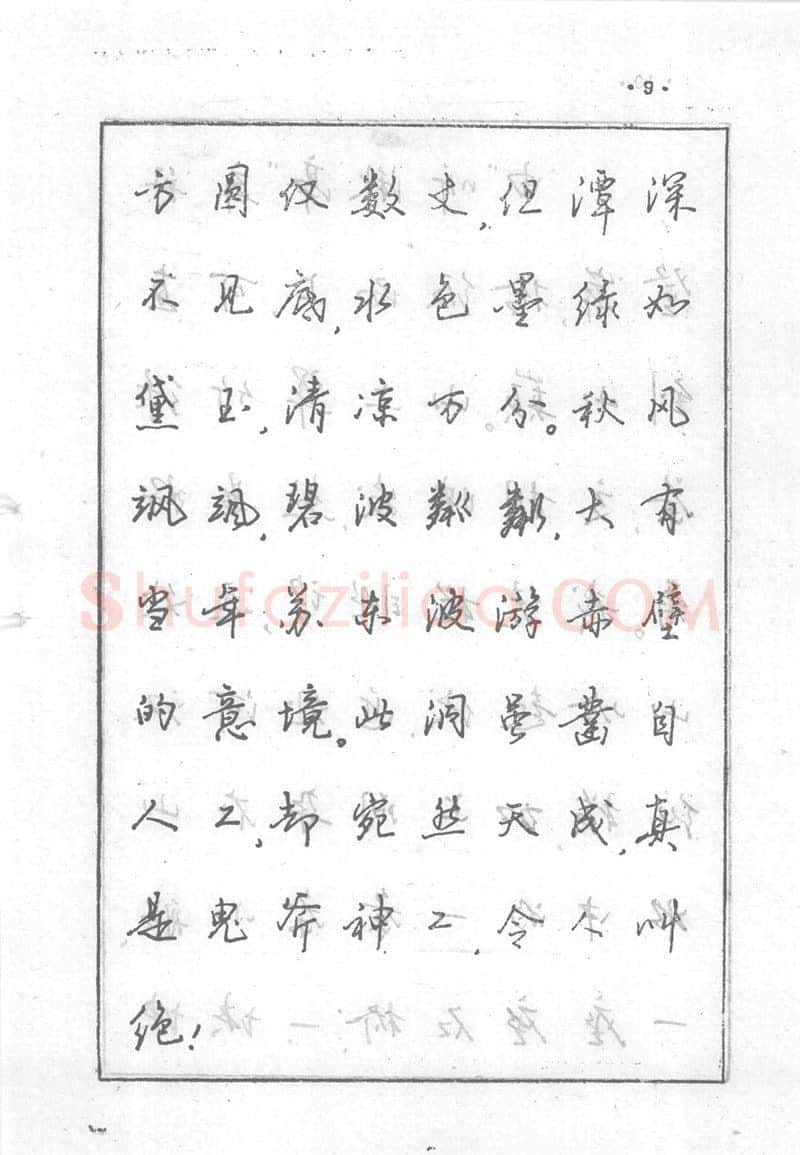 ·9·
方圆仅数丈，但潭深
不见底，水色墨绿如
黛玉，清凉万分。秋风
飒飒，碧波粼粼，大有
当年苏东坡游赤壁
的意境。此洞虽凿自
人工，却宛然天成，真
是鬼斧神工，令人叫
绝！
Shufaziliao.COM